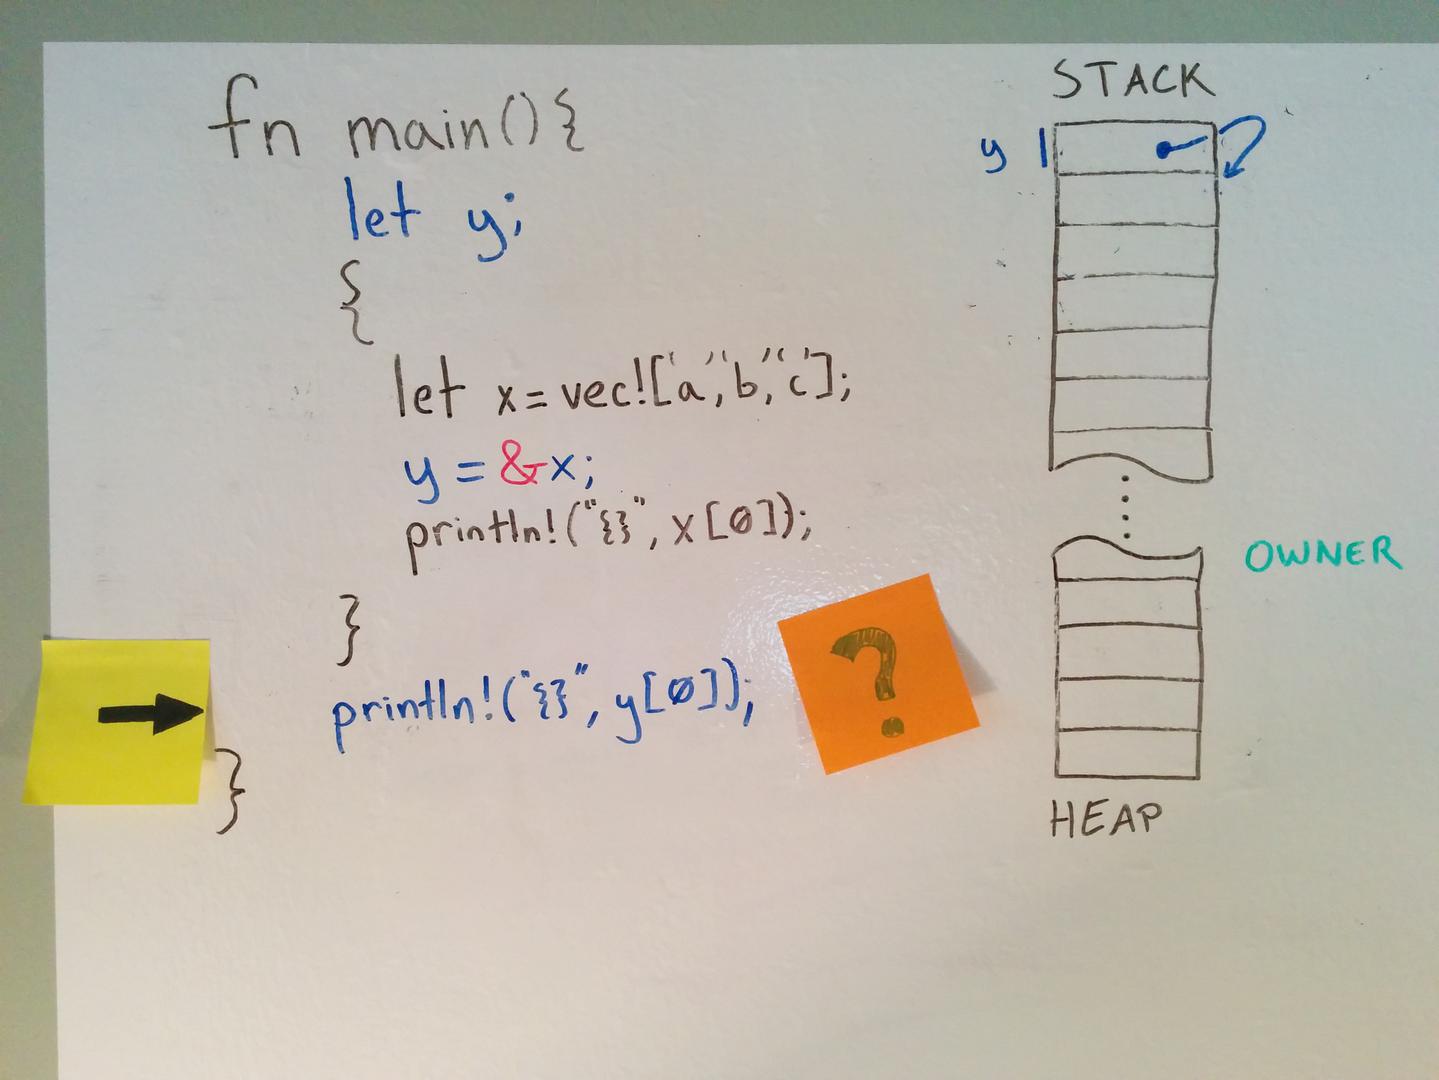 fn main(){
let y;
{
let x=vec!['a','b','c'];
y = &x;
println!("{}", x[0]);
}
println!("{}", y[0]);
}
?
STACK
y
OWNER
HEAP